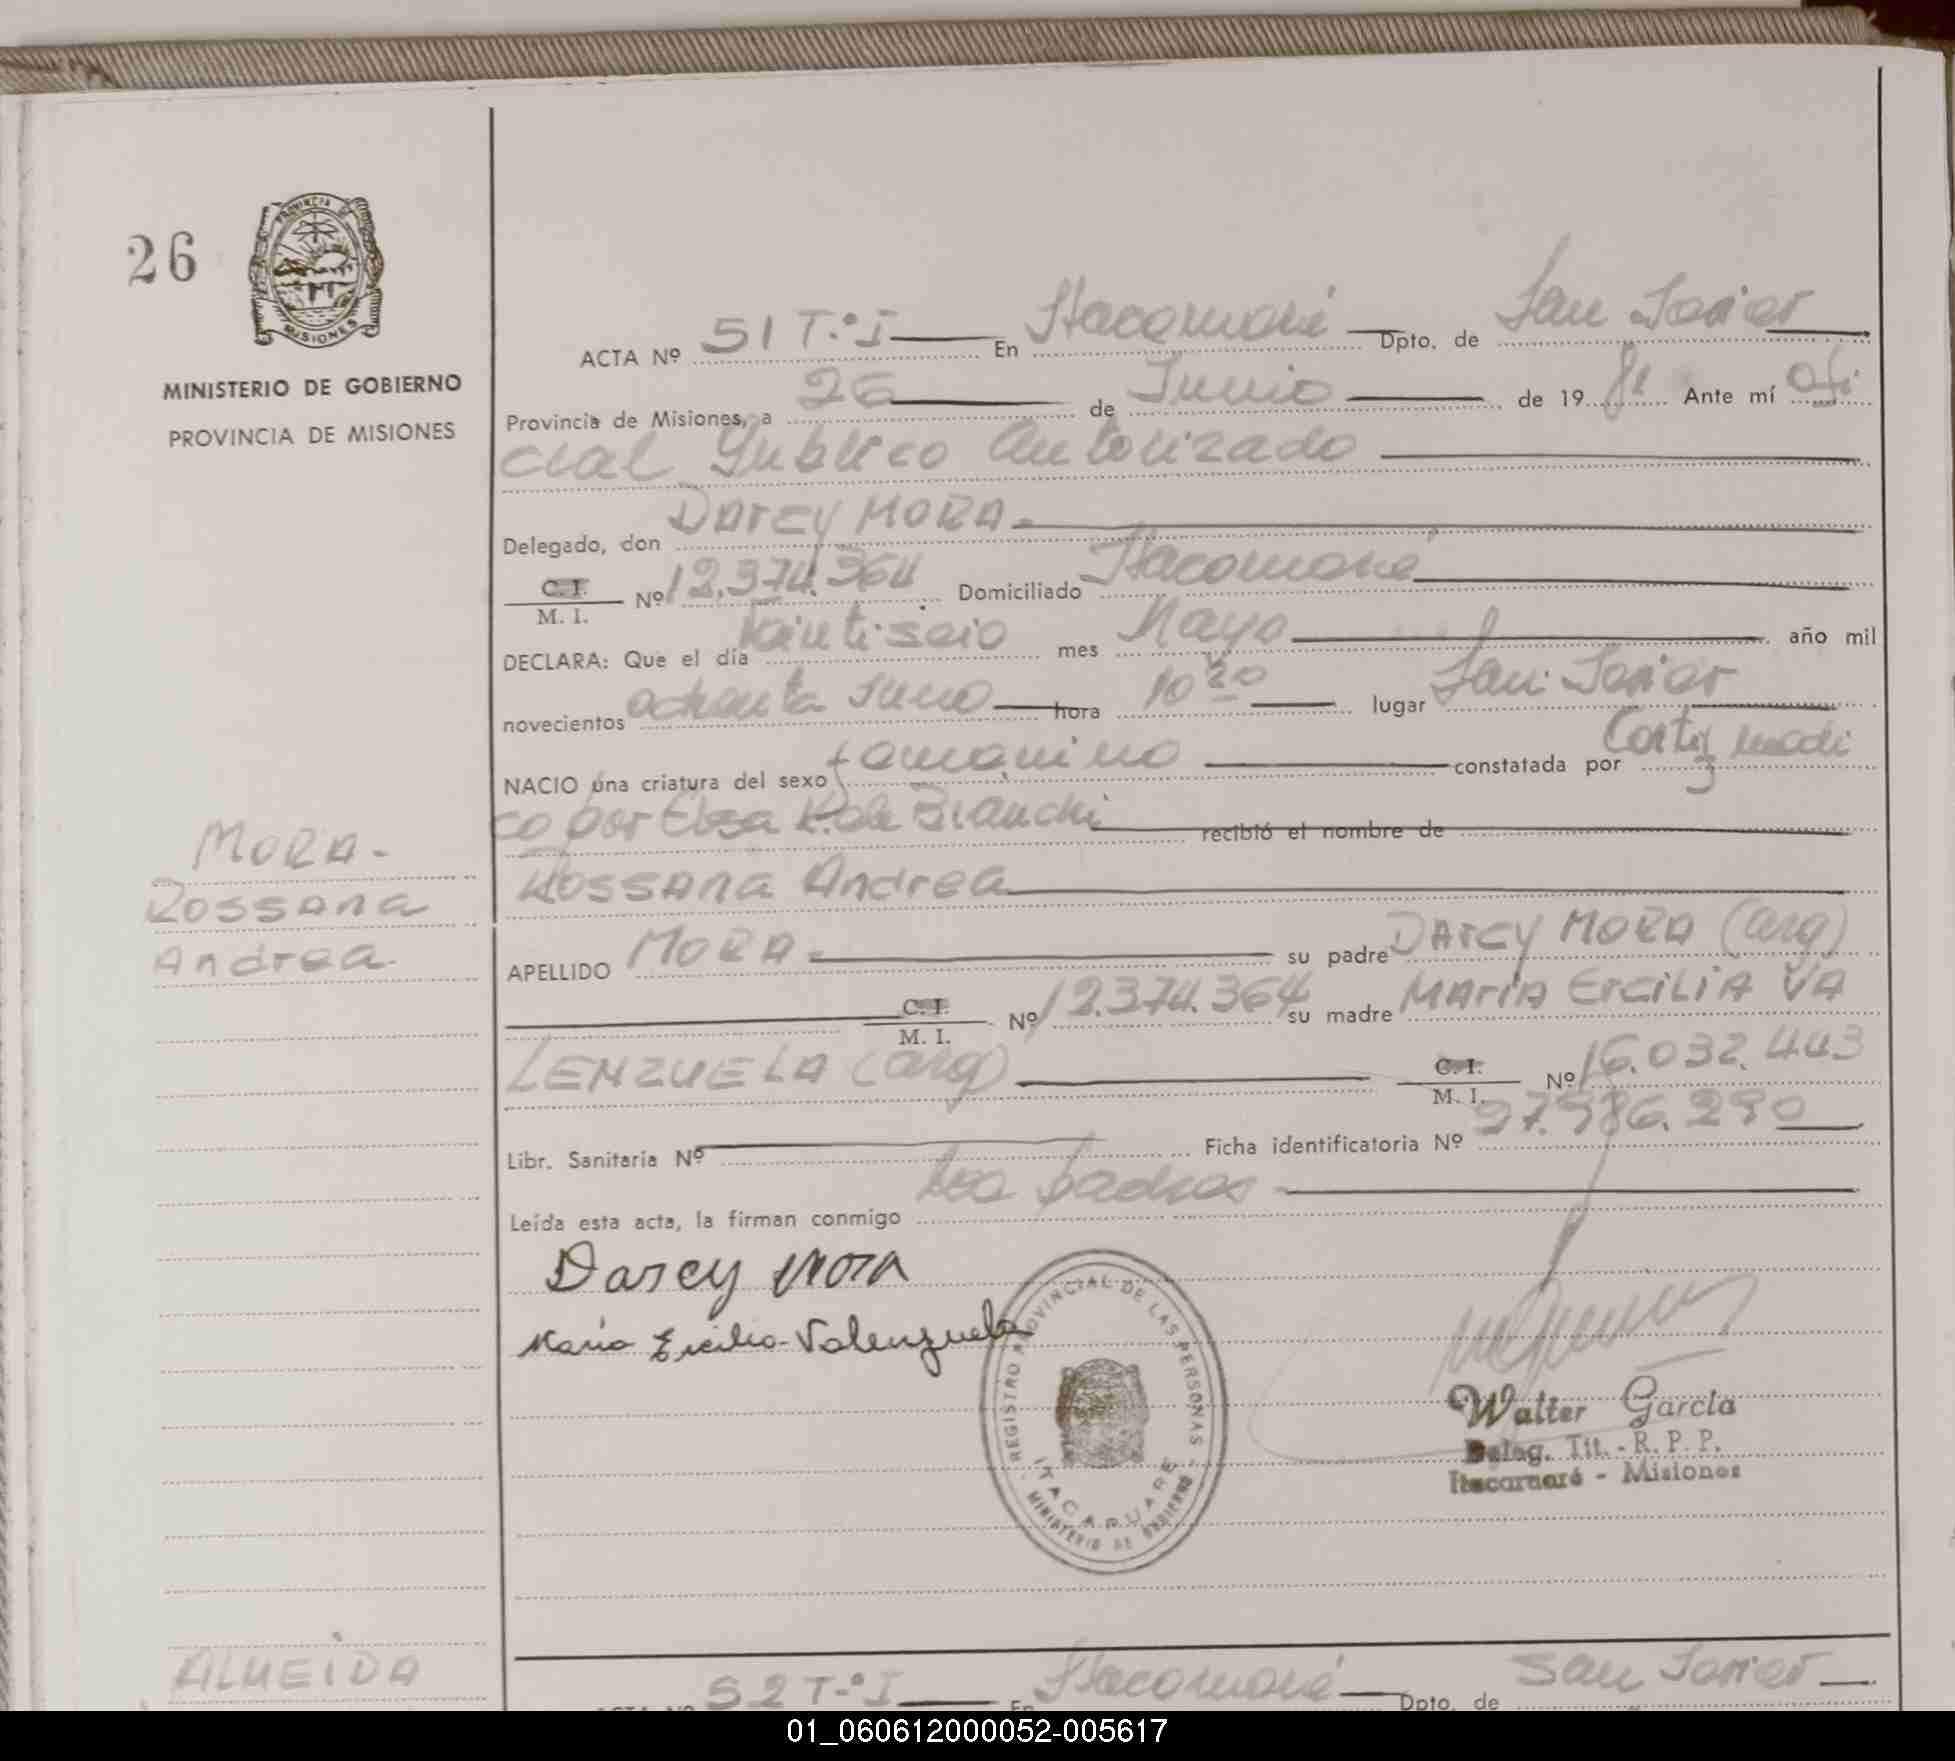 26
PROVINCIA DE
MISIONES
MINISTERIO DE GOBIERNO
PROVINCIA DE MISIONES
ACTA Nº 51 T.º I En Itacaruaré Dpto. de San Javier
Provincia de Misiones, a 26 de Junio de 19 81 Ante mí Ofi
cial Publico Autorizado
Delegado, don DArcy MORA.
C. I.
M. I. Nº 12.374.364 Domiciliado Itacaruaré
DECLARA: Que el día Veintiseis mes Mayo año mil
novecientos ochenta y uno hora 10 20 lugar San Javier
NACIO una criatura del sexo femenino constatada por Certif medi
co por Elsa R. de Bianchi recibió el nombre de
Rossana Andrea
MORA.
Rossana
Andrea.
APELLIDO MORA. su padre DArcy MORA (arg)
C. I.
M. I. Nº 12.374.364 su madre MAríA ErCiLiA VA
LENZUELA (arg) C. I.
M. I. Nº 16.032.443
Libr. Sanitaria Nº Ficha identificatoria Nº 27.986.290
Leída esta acta, la firman conmigo los padres
Darcy Mora
Maria Ercilia Valenzuela
REGISTRO PROVINCIAL DE LAS PERSONAS
ITACARUARE
MINISTERIO DE GOBIERNO
Walter García
Deleg. Tit. - R. P. P.
Itacaruaré - Misiones
ALMEiDA
ACTA Nº 52 T.º I En Itacaruaré Dpto. de San Javier
01_060612000052-005617